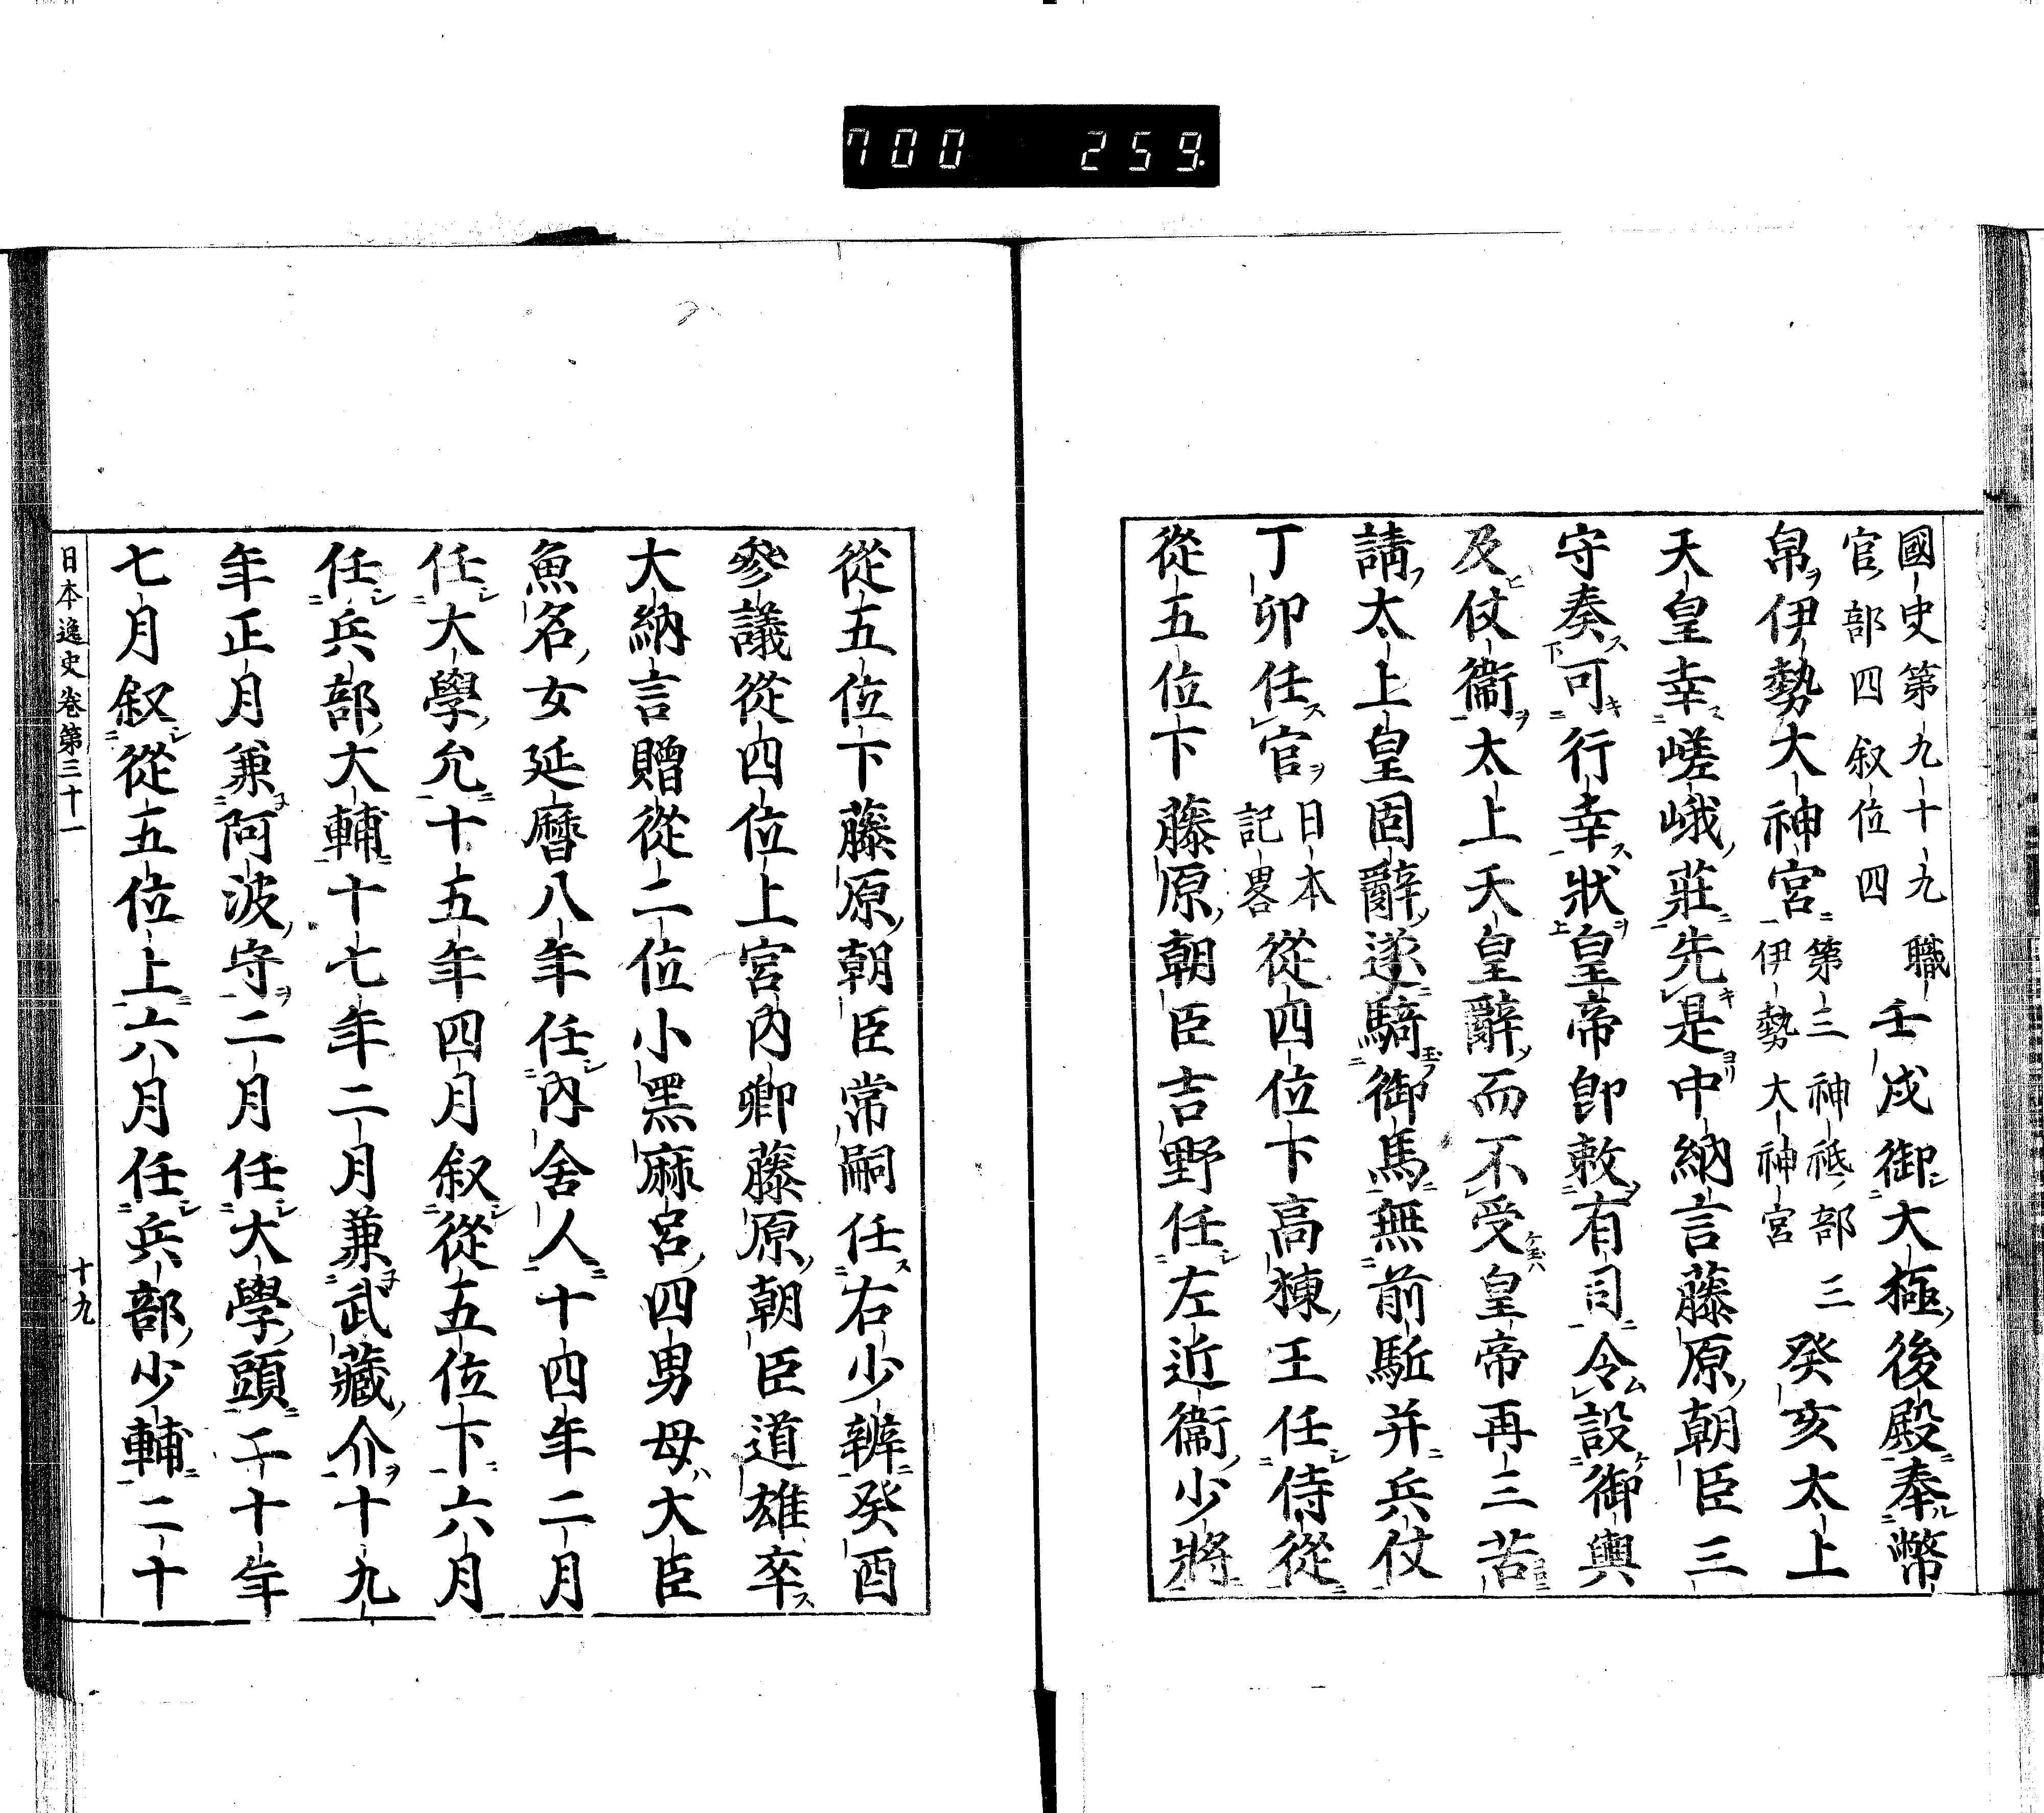 700 259.
國史第九十九職
官部四叙位四
壬戌御大極後殿奉幣
帛伊勢大神宮
第三神祇部三
伊勢大神宮
癸亥太上
天皇幸嵯峨莊先是中納言藤原朝臣三
守奏可行幸狀皇帝即敕有司令設御輿
及仗衞太上天皇辭而不受皇帝再三苦
請太上皇固辭遂騎御馬無前駈并兵仗
丁卯任官
日本
記畧
從四位下高棟王任侍從
從五位下藤原朝臣吉野任左近衞少將
從五位下藤原朝臣常嗣任右少辨癸酉
參議從四位上宮內卿藤原朝臣道雄卒
大納言贈從二位小黑麻呂四男母大臣
魚名女延曆八年任內舍人十四年二月
任大學允十五年四月叙從五位下六月
任兵部大輔十七年二月兼武藏介十九
年正月兼阿波守二月任大學頭二十年
七月叙從五位上六月任兵部少輔二十
日本逸史卷第三十一 十九